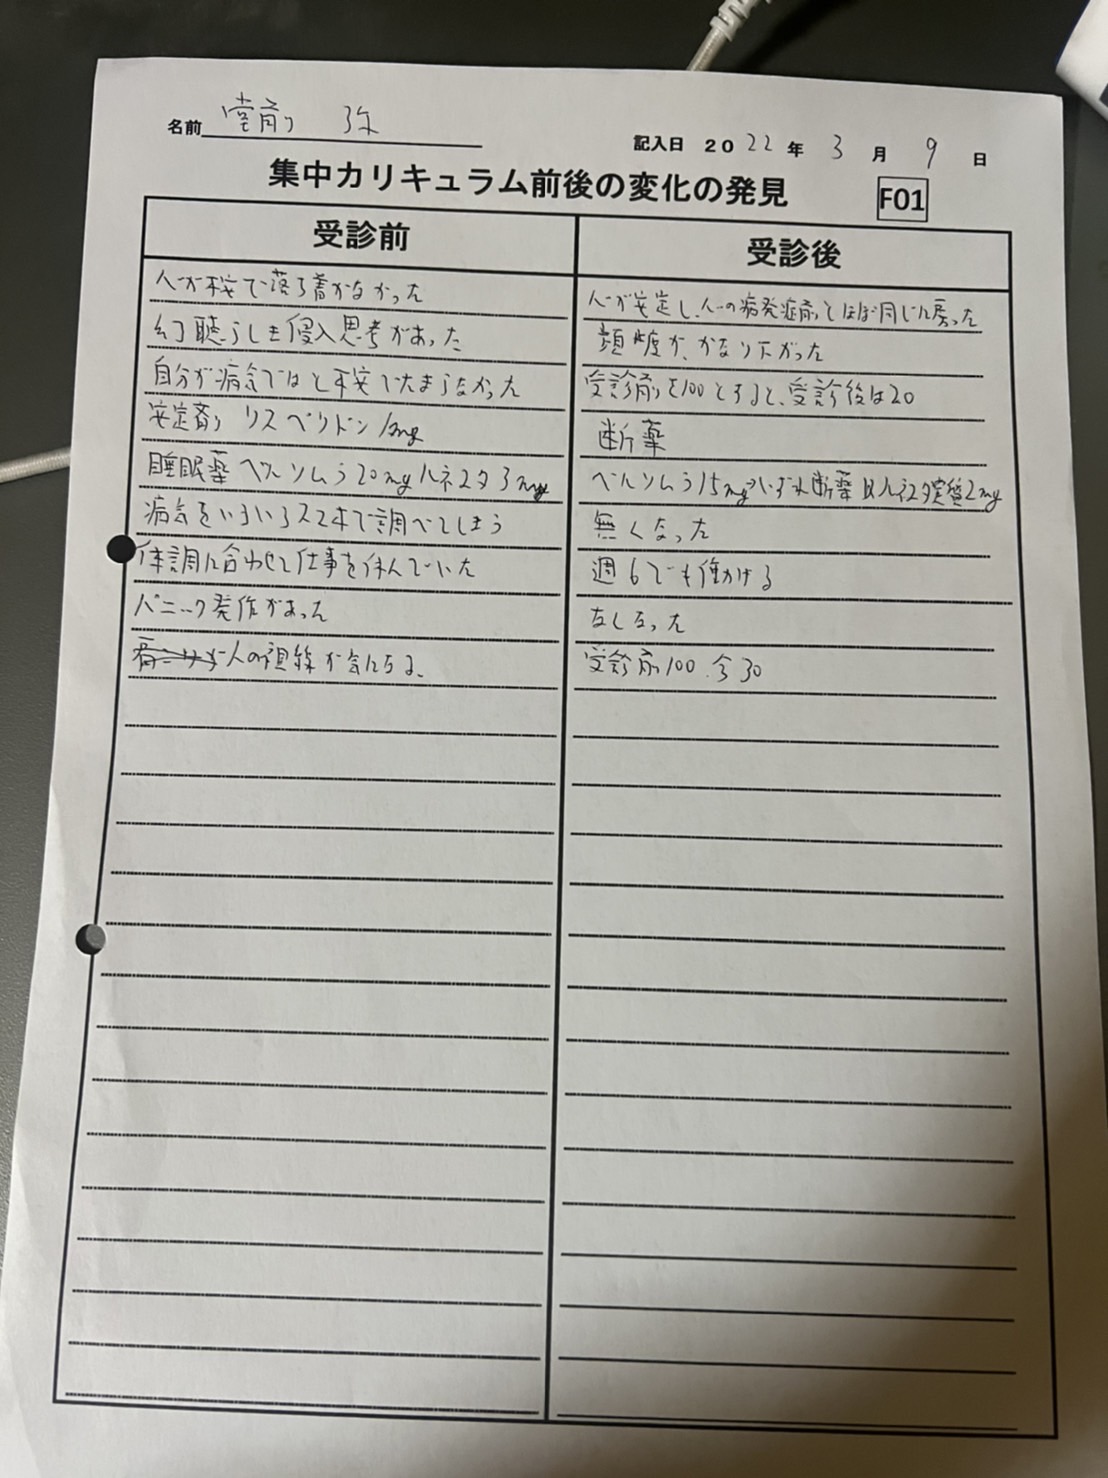 名前 堂前 弥
記入日 2022年 3月 9日
集中カリキュラム前後の変化の発見 F01
受診前
心が不安で落ち着かなかった
幻聴らしき侵入思考があった
自分が病気ではと不安でたまらなかった
安定剤 リスペリドン 1mg
睡眠薬 ベルソムラ20mg ルネスタ3mg
病気をいろいろスマホで調べてしまう
体調に合わせて仕事を休んでいた
パニック発作があった
人の視線が気になる。
受診後
心が安定し、心の病発症前とほぼ同じに戻った
頻度が、かなり下がった
受診前を100とすると、受診後は20
断薬
ベルソムラ15mg いずれ断薬 ルネスタ実質2mg
無くなった
週6でも働ける
なくなった
受診前100.今30